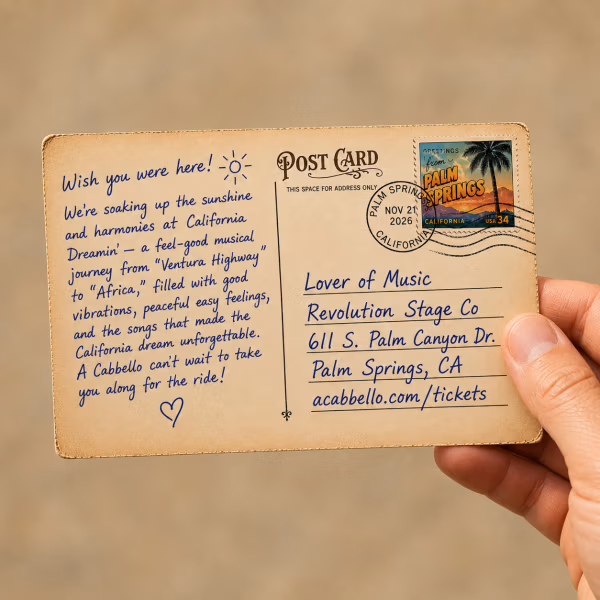 Wish you were here!
We're soaking up the sunshine
and harmonies at California
Dreamin' — a feel-good musical
journey from "Ventura Highway"
to "Africa," filled with good
vibrations, peaceful easy feelings,
and the songs that made the
California dream unforgettable.
A Cabbello can't wait to take
you along for the ride!
POST CARD
THIS SPACE FOR ADDRESS ONLY
PALM SPRINGS
NOV 21
2026
CALIFORNIA
GREETINGS
from
PALM
SPRINGS
CALIFORNIA
USA 34
Lover of Music
Revolution Stage Co
611 S. Palm Canyon Dr.
Palm Springs, CA
acabbello.com/tickets